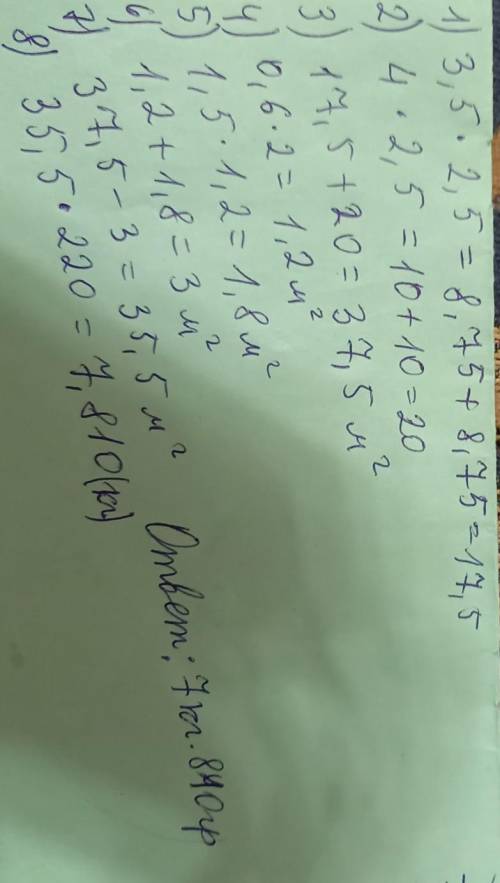 1) 3,5 · 2,5 = 8,75 + 8,75 = 17,5
2) 4 · 2,5 = 10 + 10 = 20
3) 17,5 + 20 = 37,5 м²
4) 0,6 · 2 = 1,2 м²
5) 1,5 · 1,2 = 1,8 м²
6) 1,2 + 1,8 = 3 м²
7) 37,5 - 3 = 35,5 м²
8) 35,5 · 220 = 7,810 (кг)
Ответ: 7 кг. 810 гр